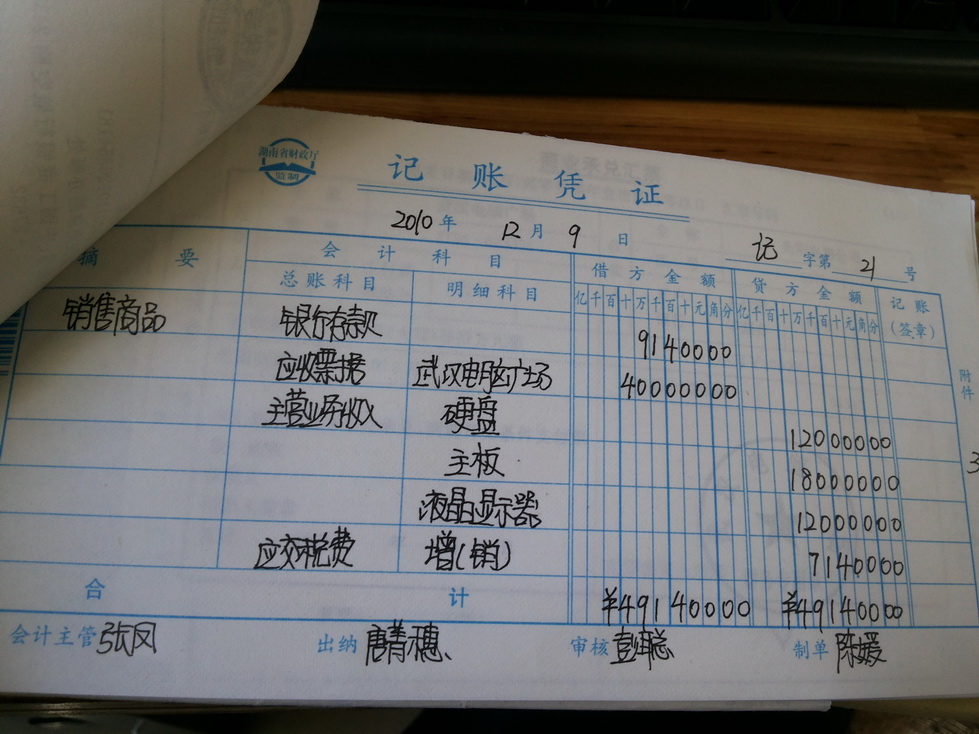 湖南省财政厅
监制
记账凭证
2010年 12月 9日 记字第 21号
摘要 会计科目 借方金额 贷方金额 记账(签章)
总账科目 明细科目 亿千百十万千百十元角分 亿千百十万千百十元角分
销售商品 银行存款 9140000
应收票据 武汉电脑广场 40000000
主营业务收入 硬盘 12000000
主板 18000000
液晶显示器 12000000
应交税费 增(销) 7140000
合计 ¥49140000 ¥49140000
附件 3
会计主管 张凤 出纳 唐菁穗 审核 彭聪 制单 陈媛